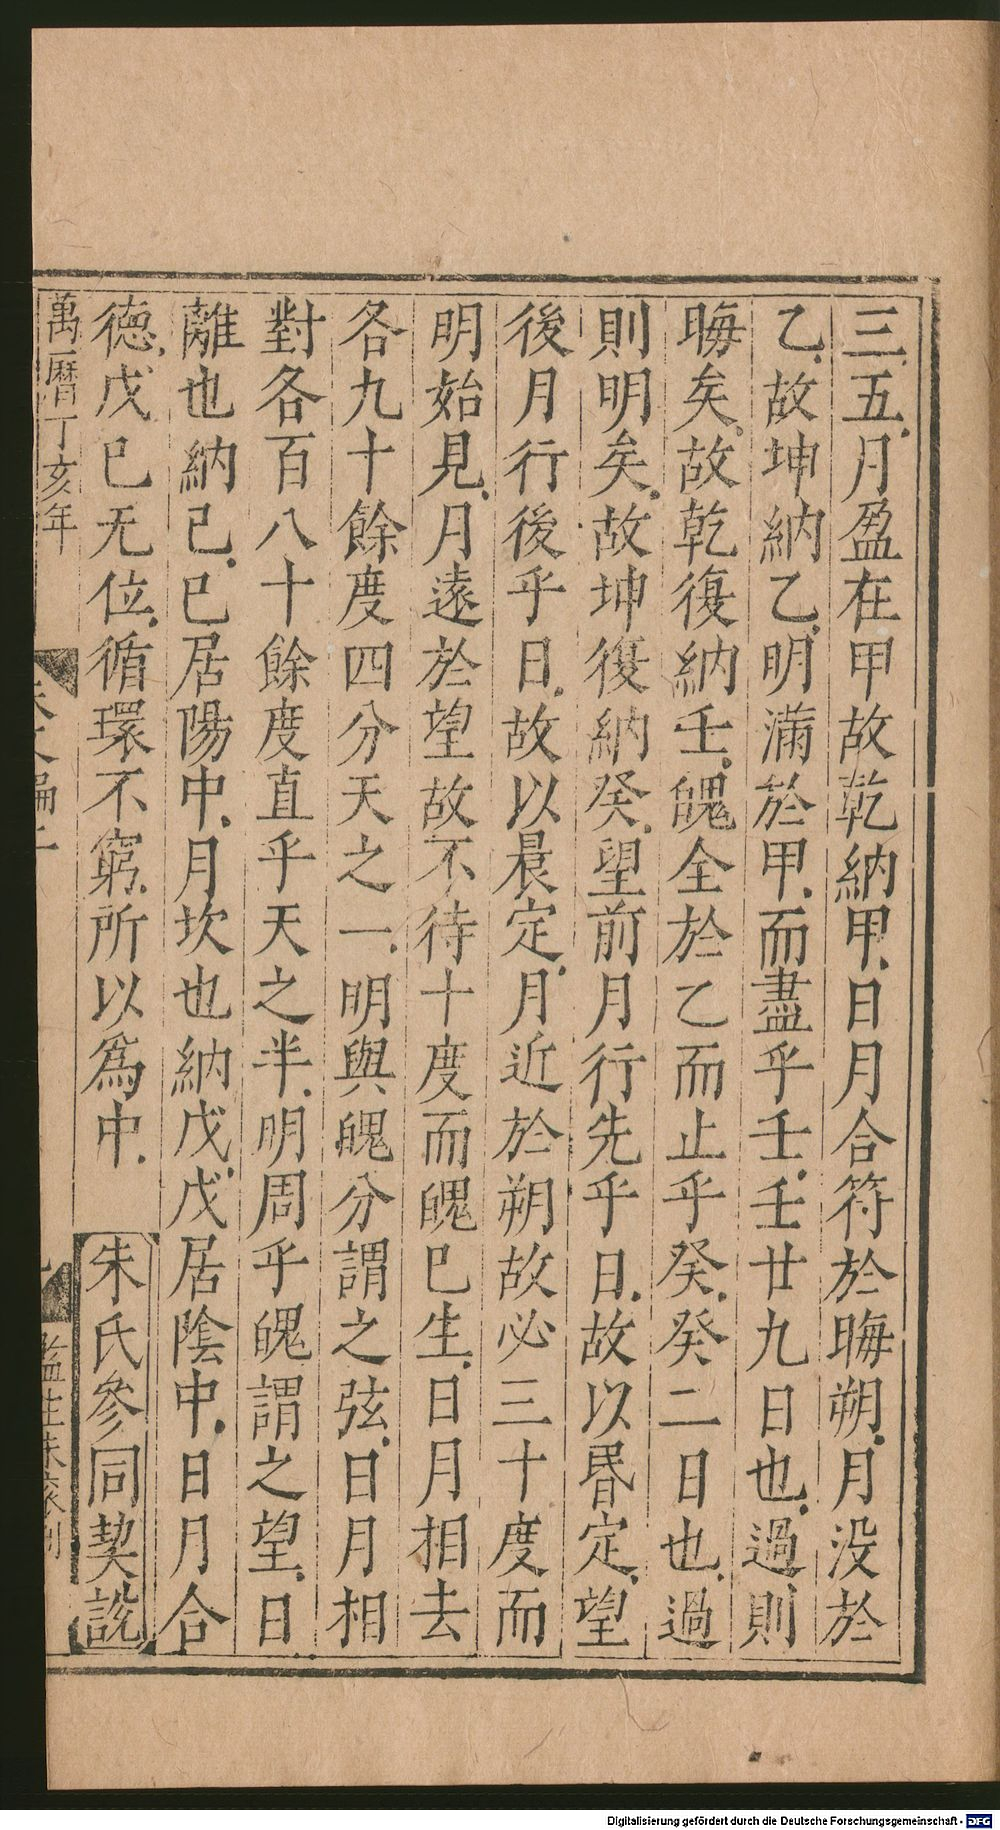 三五月盈在甲故乾納甲日月合符於晦朔月没於
乙故坤納乙明滿於甲而盡乎壬壬廿九日也過則
晦矣故乾復納壬魄全於乙而止乎癸癸二日也過
則明矣故坤復納癸望前月行先乎日故以昬定望
後月行後乎日故以晨定月近於朔故必三十度而
明始見月遠於望故不待十度而魄巳生日月相去
各九十餘度四分天之一明與魄分謂之弦日月相
對各百八十餘度直乎天之半明周乎魄謂之望日
離也納己巳居陽中月坎也納戊戊居陰中日月合
德戊巳无位循環不窮所以爲中 朱氏參同契説
萬曆丁亥年
Digitalisierung gefördert durch die Deutsche Forschungsgemeinschaft - DFG